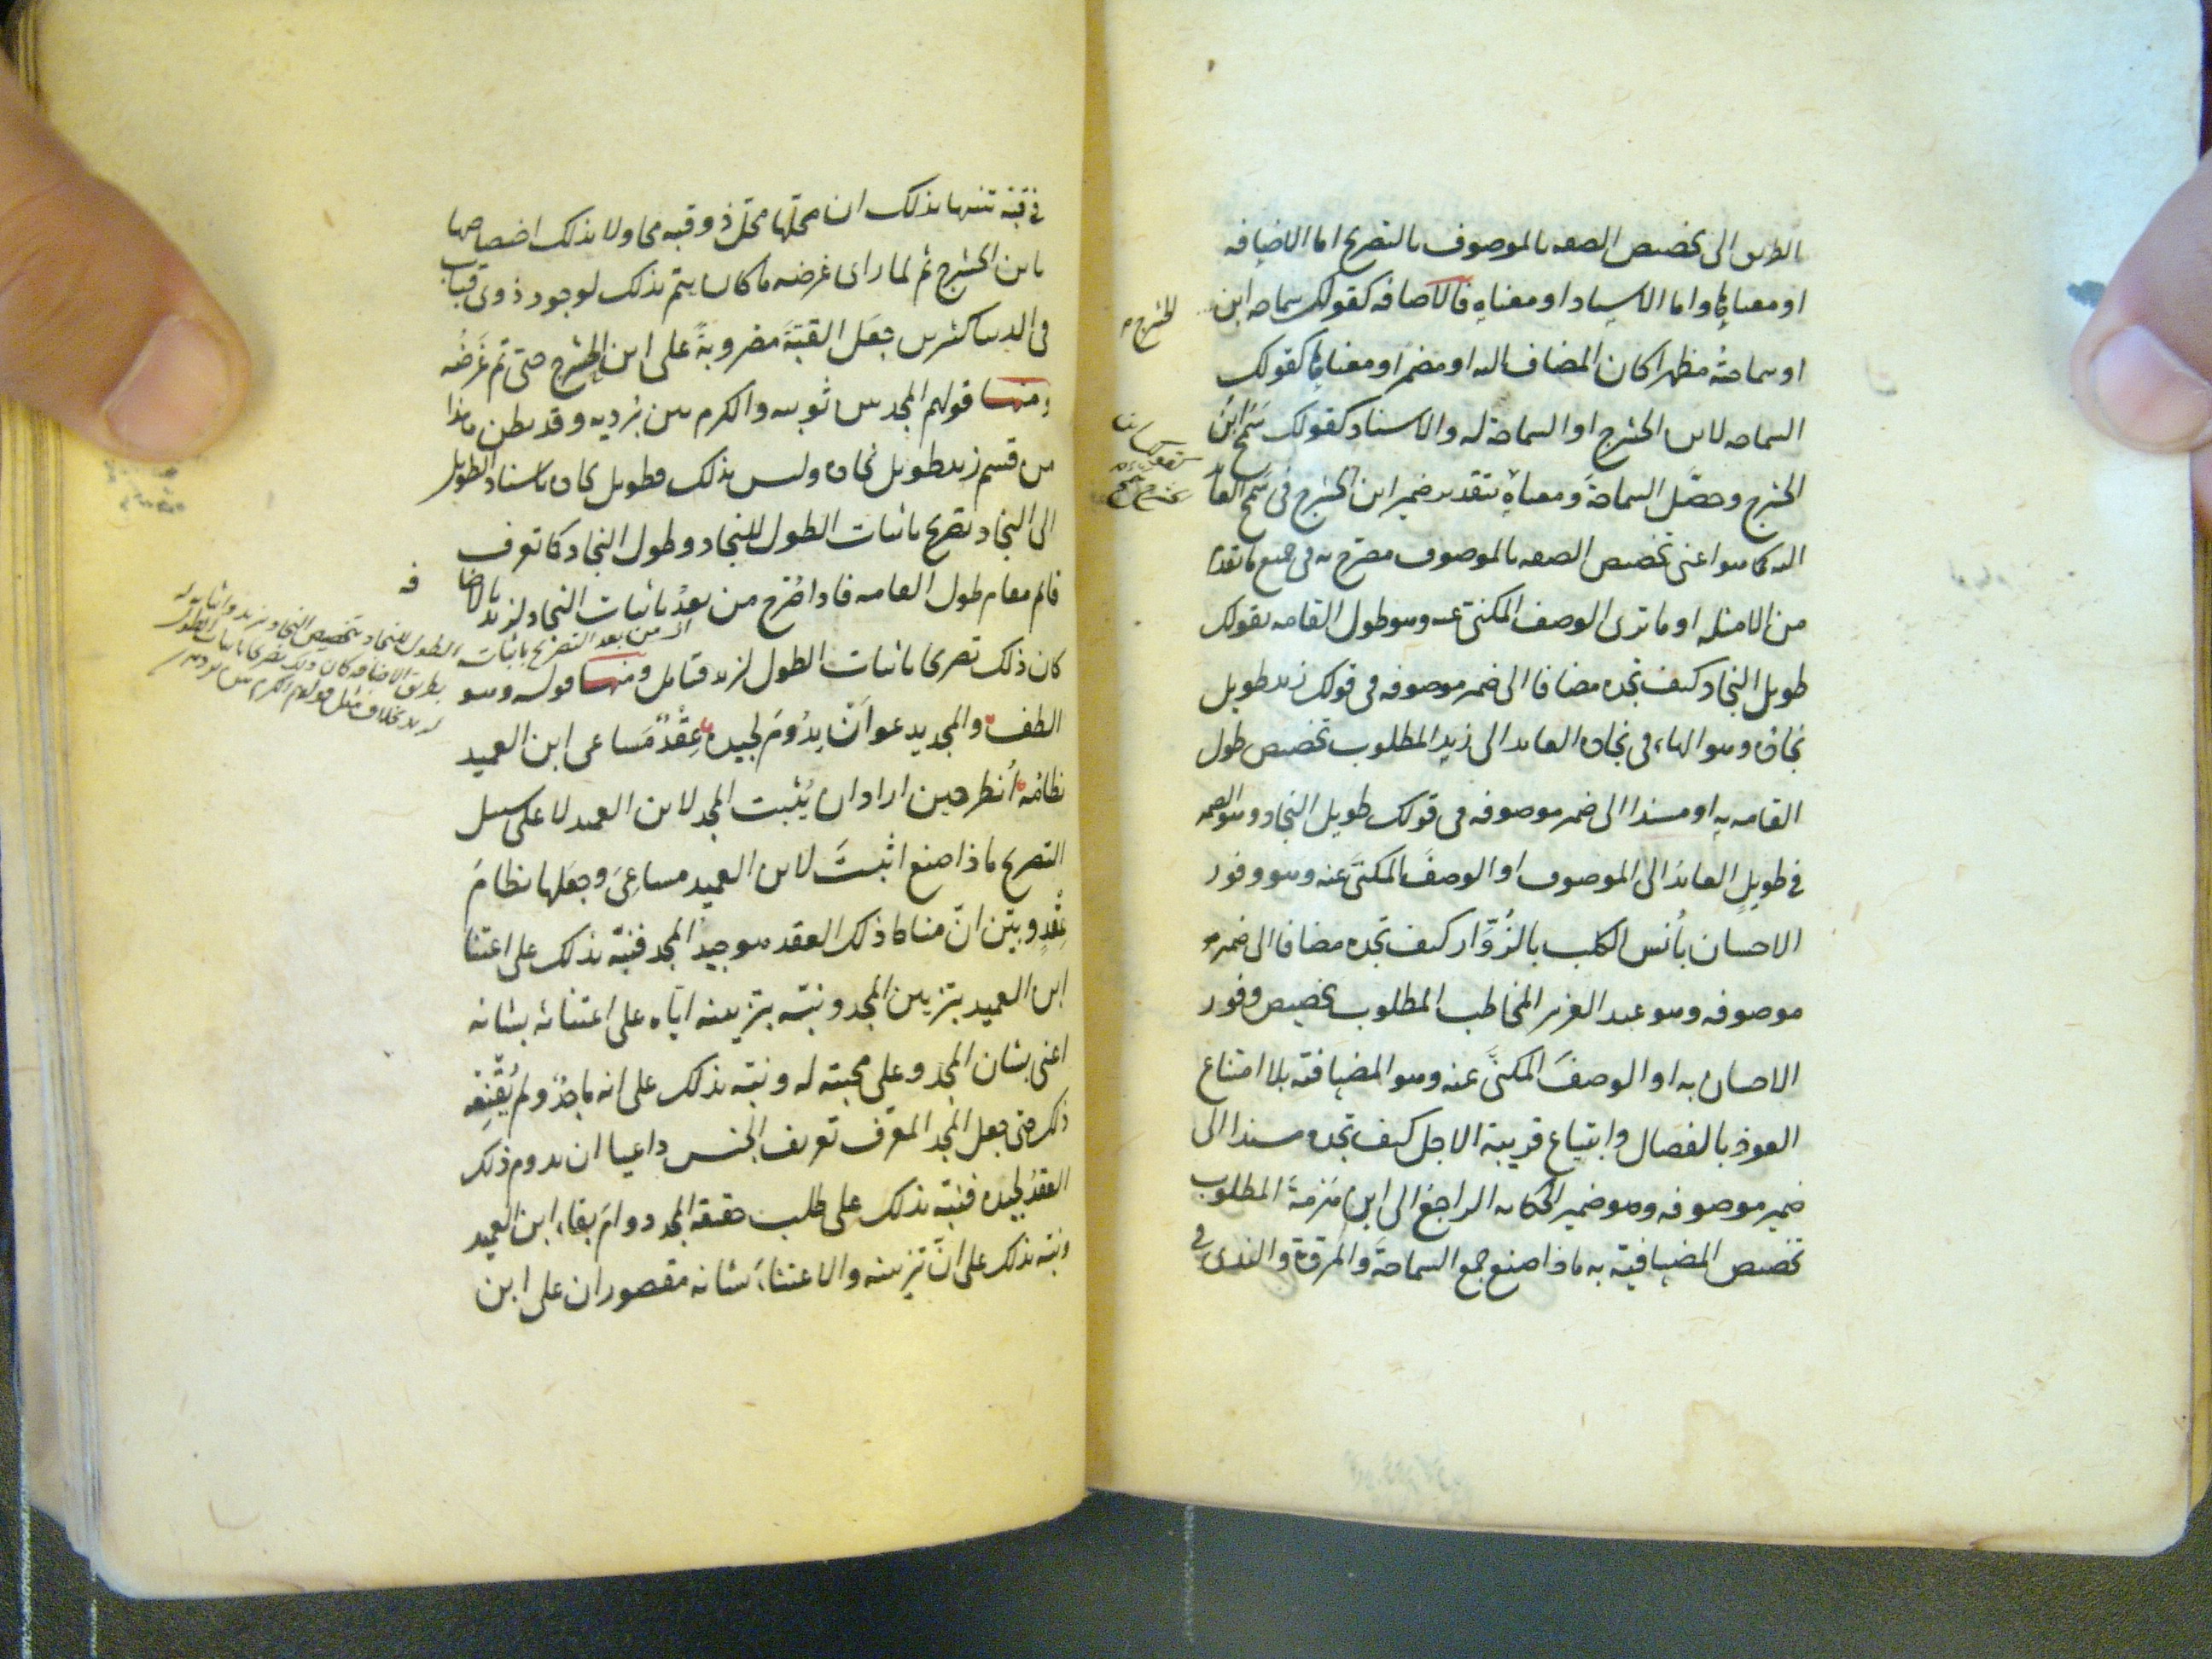 الطرىں الى تخصيص الصفه بالموصوف بالتصريح اما الاضافه
او معناها واما الاسناد او معناه فالاضافه كقولك سماحه ابن
الحشرج
او سماحته مظهرا كان المضاف اليه او مضمرا او معناها كقولك
السماحه لابن الحشرج او السماحة له والاسناد كقولك سَمُحَ ابنُ
الحشرج وحصّل السماحةَ ومعناه بتقدير ضمير ابن الحشرج فى سَمُحَ العائد
اليه كما هو اعنى تخصيص الصفه بالموصوف مصرّح به فى جميع ما تقدم
من الامثله او ما ترى الوصف المكنىّ عنه وهو طول القامه بقولك
طويل النجاد كيف تجده مضافا الى ضمير موصوفه فى قولك زيد طويل
نجاده وهو الهاء فى نجاده العائد الى زيد المطلوب تخصيص طول
القامه به او مسندا الى ضمير موصوفه فى قولك طويل النجاد وهو الضمير
فى طويلٍ العائد الى الموصوف او الوصفَ المكنىَّ عنه وهو وفور
الاحسان بأُنس الكلب بالزُوّار كيف تجده مضافا الى ضمير
موصوفه وهو عبد العزيز المخاطب المطلوب تخصيص وفور
الاحسان به او الوصفَ المكنىَّ عنه وهو المضيافية بلا امتناع
العوذ بالفصال وابتياع قريبة الاجل كيف تجده مسندا الى
ضمير موصوفه وهو ضمير الحكايه الراجع الى ابن هَرْمةَ المطلوب
تخصيص المضيافية به ماذا صنع جمع السماحةَ والمروّةَ والندى فى
فى قبّة تنبيها بذلك ان محلّها محلّ ذو قبه محاولا بذلك اختصاصها
بابن الحشرج ثم لما راى غرضه ما كان يتم بذلك لوجود ذوى قباب
فى الدنيا كثيرين جعَل القبّةَ مضروبةً على ابن الحشرج حتى تم غَرَضُه
ومنها قولهم المجد بين ثوبيه والكرم بين بُرديه وقد يظن هذا
من قسم زيد طويل نجاده وليس بذلك فطويل نجاده باسناد الطويل
الى النجاد تصريح باثبات الطول للنجاد وطول النجاد كما تعرف
قائم مقام طول القامه فاذا صُرّح من بعدُ باثبات النجاد لزيد بالاضا
فه
اى من بعد التصريح باثبات الطول للنجاد بتخصيص النجاد بزيد واثباته له
بطريق الاضافه كان ذلك تصريحا باثبات الطول
لزيد بخلاف مثل قولهم الكرم بين برديه
كان ذلك تصريحا باثبات الطول لزيد فتامل ومنها قوله وهو
الطف والمجد يدعو اَنْ يدُومَ لجيده عِقْدٌ مَساعى ابن العميد
نظامُه اُنظر حين اراد ان يُثبت المجد لابن العميد لا على سبيل
التصريح ماذا صنع اثبتَ لابن العميد مساعِىَ وجعَلها نظامَ
عِقْدٍ وبيّن انّ مناط ذلك العقد هو جيد المجد فنبّه بذلك على اعتنا
ابن العميد بتزيين المجد ونبّه بتزيينه ايّاه على اعتنائه بشانه
اعنى بشان المجد وعلى محبته له ونبّه بذلك على انه ماجدٌ ولم يُقْنِعْه
ذلك حتى جعل المجد المعرّف تعريف الجنس داعيا ان يدوم ذلك
العقدُ لجيده فنبّه بذلك على طلب حقيقه المجد دوامَ بقاء ابن العميد
ونبّه بذلك على انّ تزيينه والاعتناءَ بشانه مقصوران على ابن